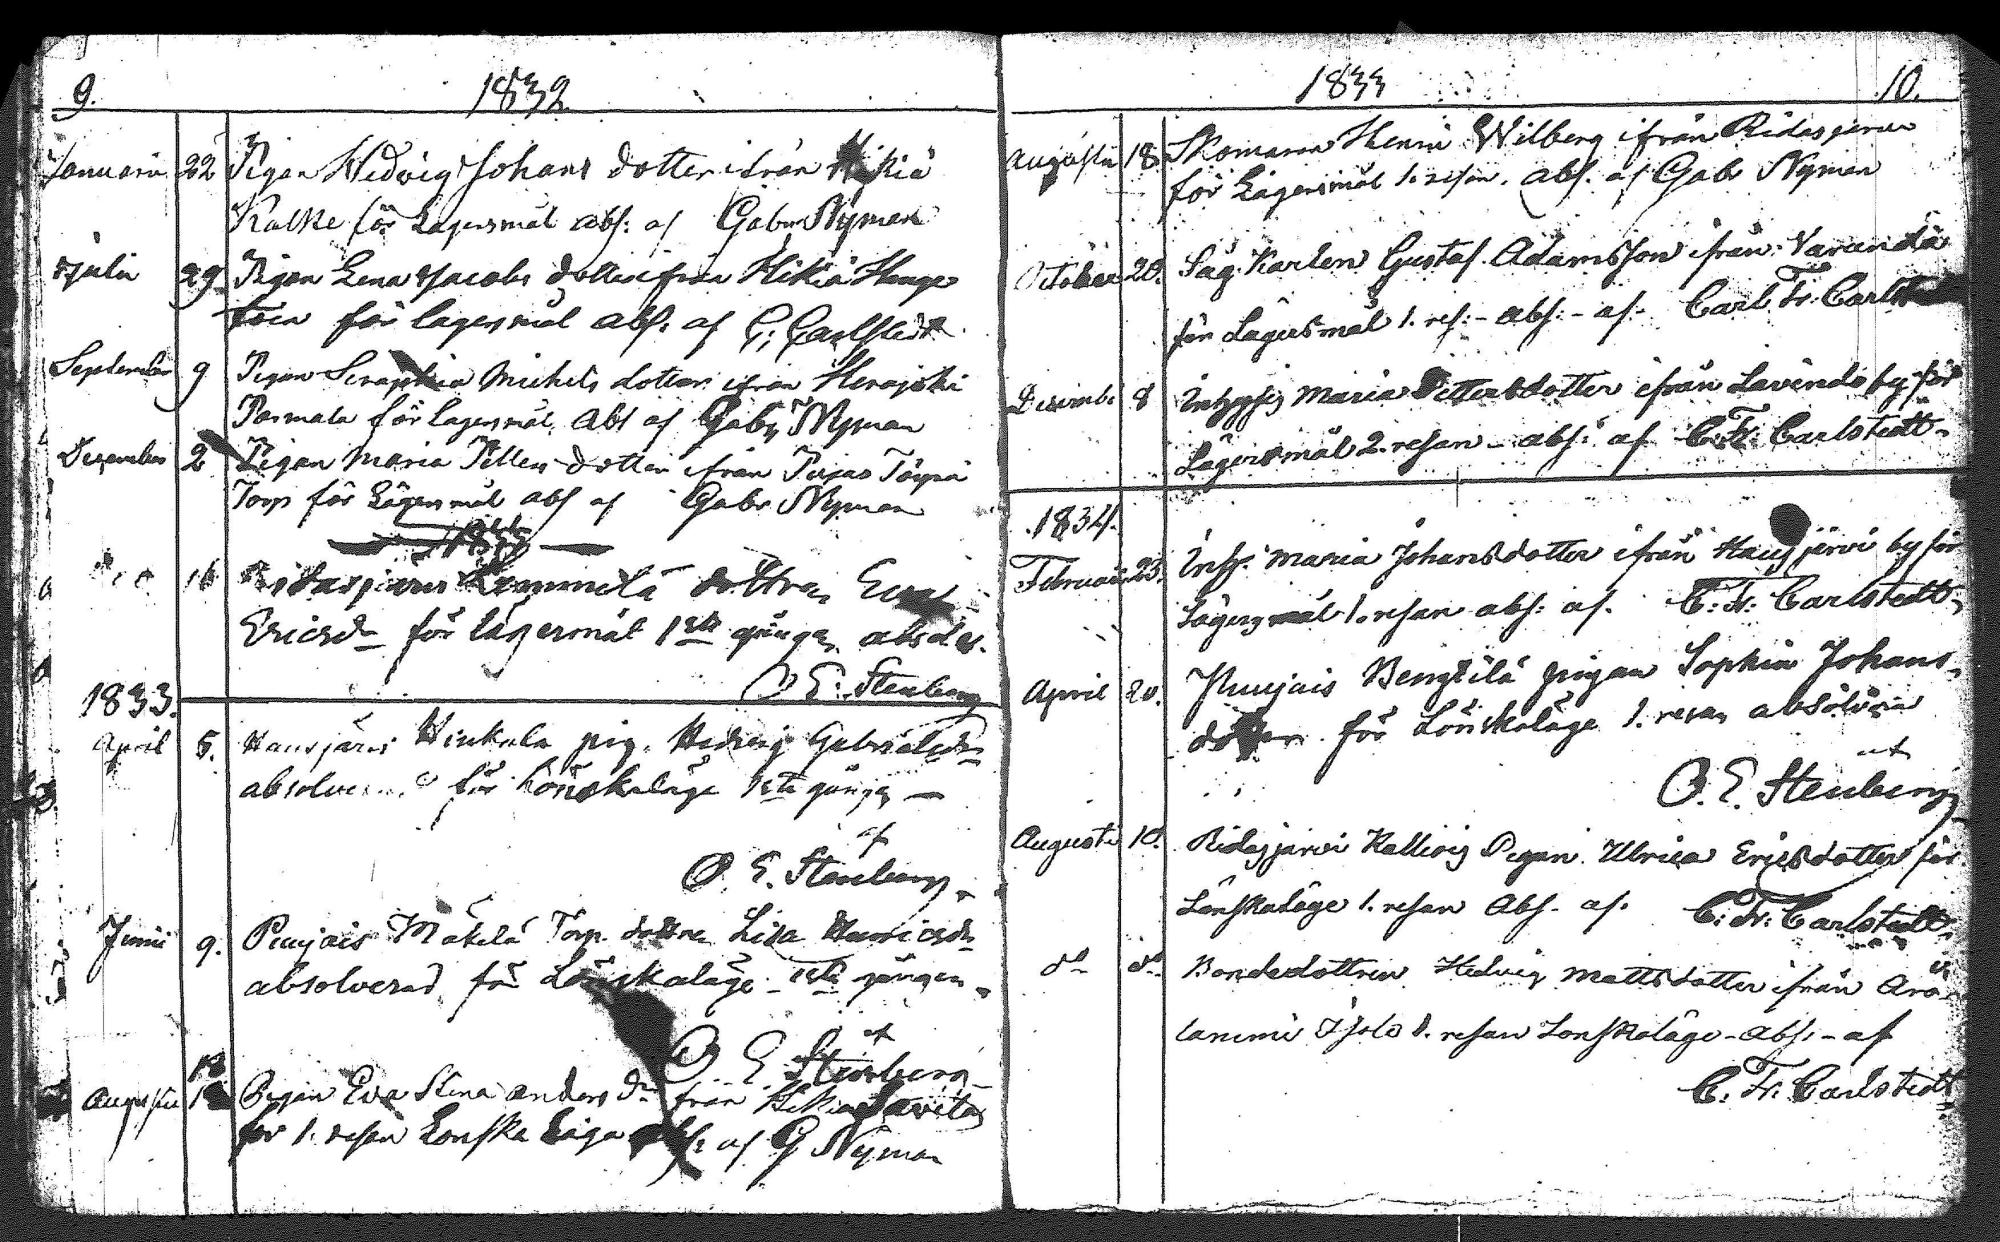 9.
1832
Januarii 22 Pigan Hedvig Johans dotter ifrån Hikiä
Kalke för Lägersmål abs: af Gabr Nyman
Julii 29 Pigan Lena Jacobs dotter ifrån Hikiä Hauge
för lägersmål abs: af C: Carlstedt
September 9 Pigan Seraphia Michels dotter ifrån Herajoki
Parmala för Lägersmål Abs af Gabr Nyman
December 2 Pigan Maria Petters dotter ifrån Pujas Törpä
Torp för Lägersmål abs af Gabr Nyman
16 dottren Eva
Ericsdr för lägersmål 1sta gången absol. af
O E. Stenberg
1833.
April 5. Hausjärvi Hinkala pig. Hedvig Gabrielsdr
absolverad för Lönskaläge 1sta gången —
af
O. E. Stenberg
Junii 9. Puujais Mäkelä Torp. dottren Lisa Henricsdr
absolverad för Lönskaläge 1sta gången
af
O E Stenberg
Augusti 18 Pigan Eva Stina Anders dr från Hikiä
för 1. resan Lönska läge abs: af G Nyman
1833
10.
Augusti 18. Skomaren Henric Wilberg ifrån Ridasjärvi
för Lägersmål 1. resan. abs. af Gabr Nyman
October 20. Såg. Karlen Gustaf Adamsson ifrån
för Lägersmål 1. res: - abs: - af - Carl Fr: Carlstedt
Decemb: 8 Inhyses Maria Pettersdotter ifrån Lavinto by för
Lägersmål 2. resan - abs: af C. Fr: Carlstedt
1834.
Februarii 23. Inh: Maria Johansdotter ifrån Hausjärvi by för
Lägersmål 1. resan abs: af. C: Fr: Carlstedt
April 20. Puujais Bengtilä pigan Sophia Johans-
dotter för Lönskaläge 1. resan absolverad
af
O. E. Stenberg
Augusti 10. Ridasjärvi Kallioig Pigan Ulrica Ericsdotter för
Lönskaläge 1. resan Abs. af. C: Fr: Carlstedt
do do Bondedottren Hedvig Mattsdotter ifrån Aro-
lammi Isolo 1. resan Lönskaläge - abs: - af
C. Fr. Carlstedt